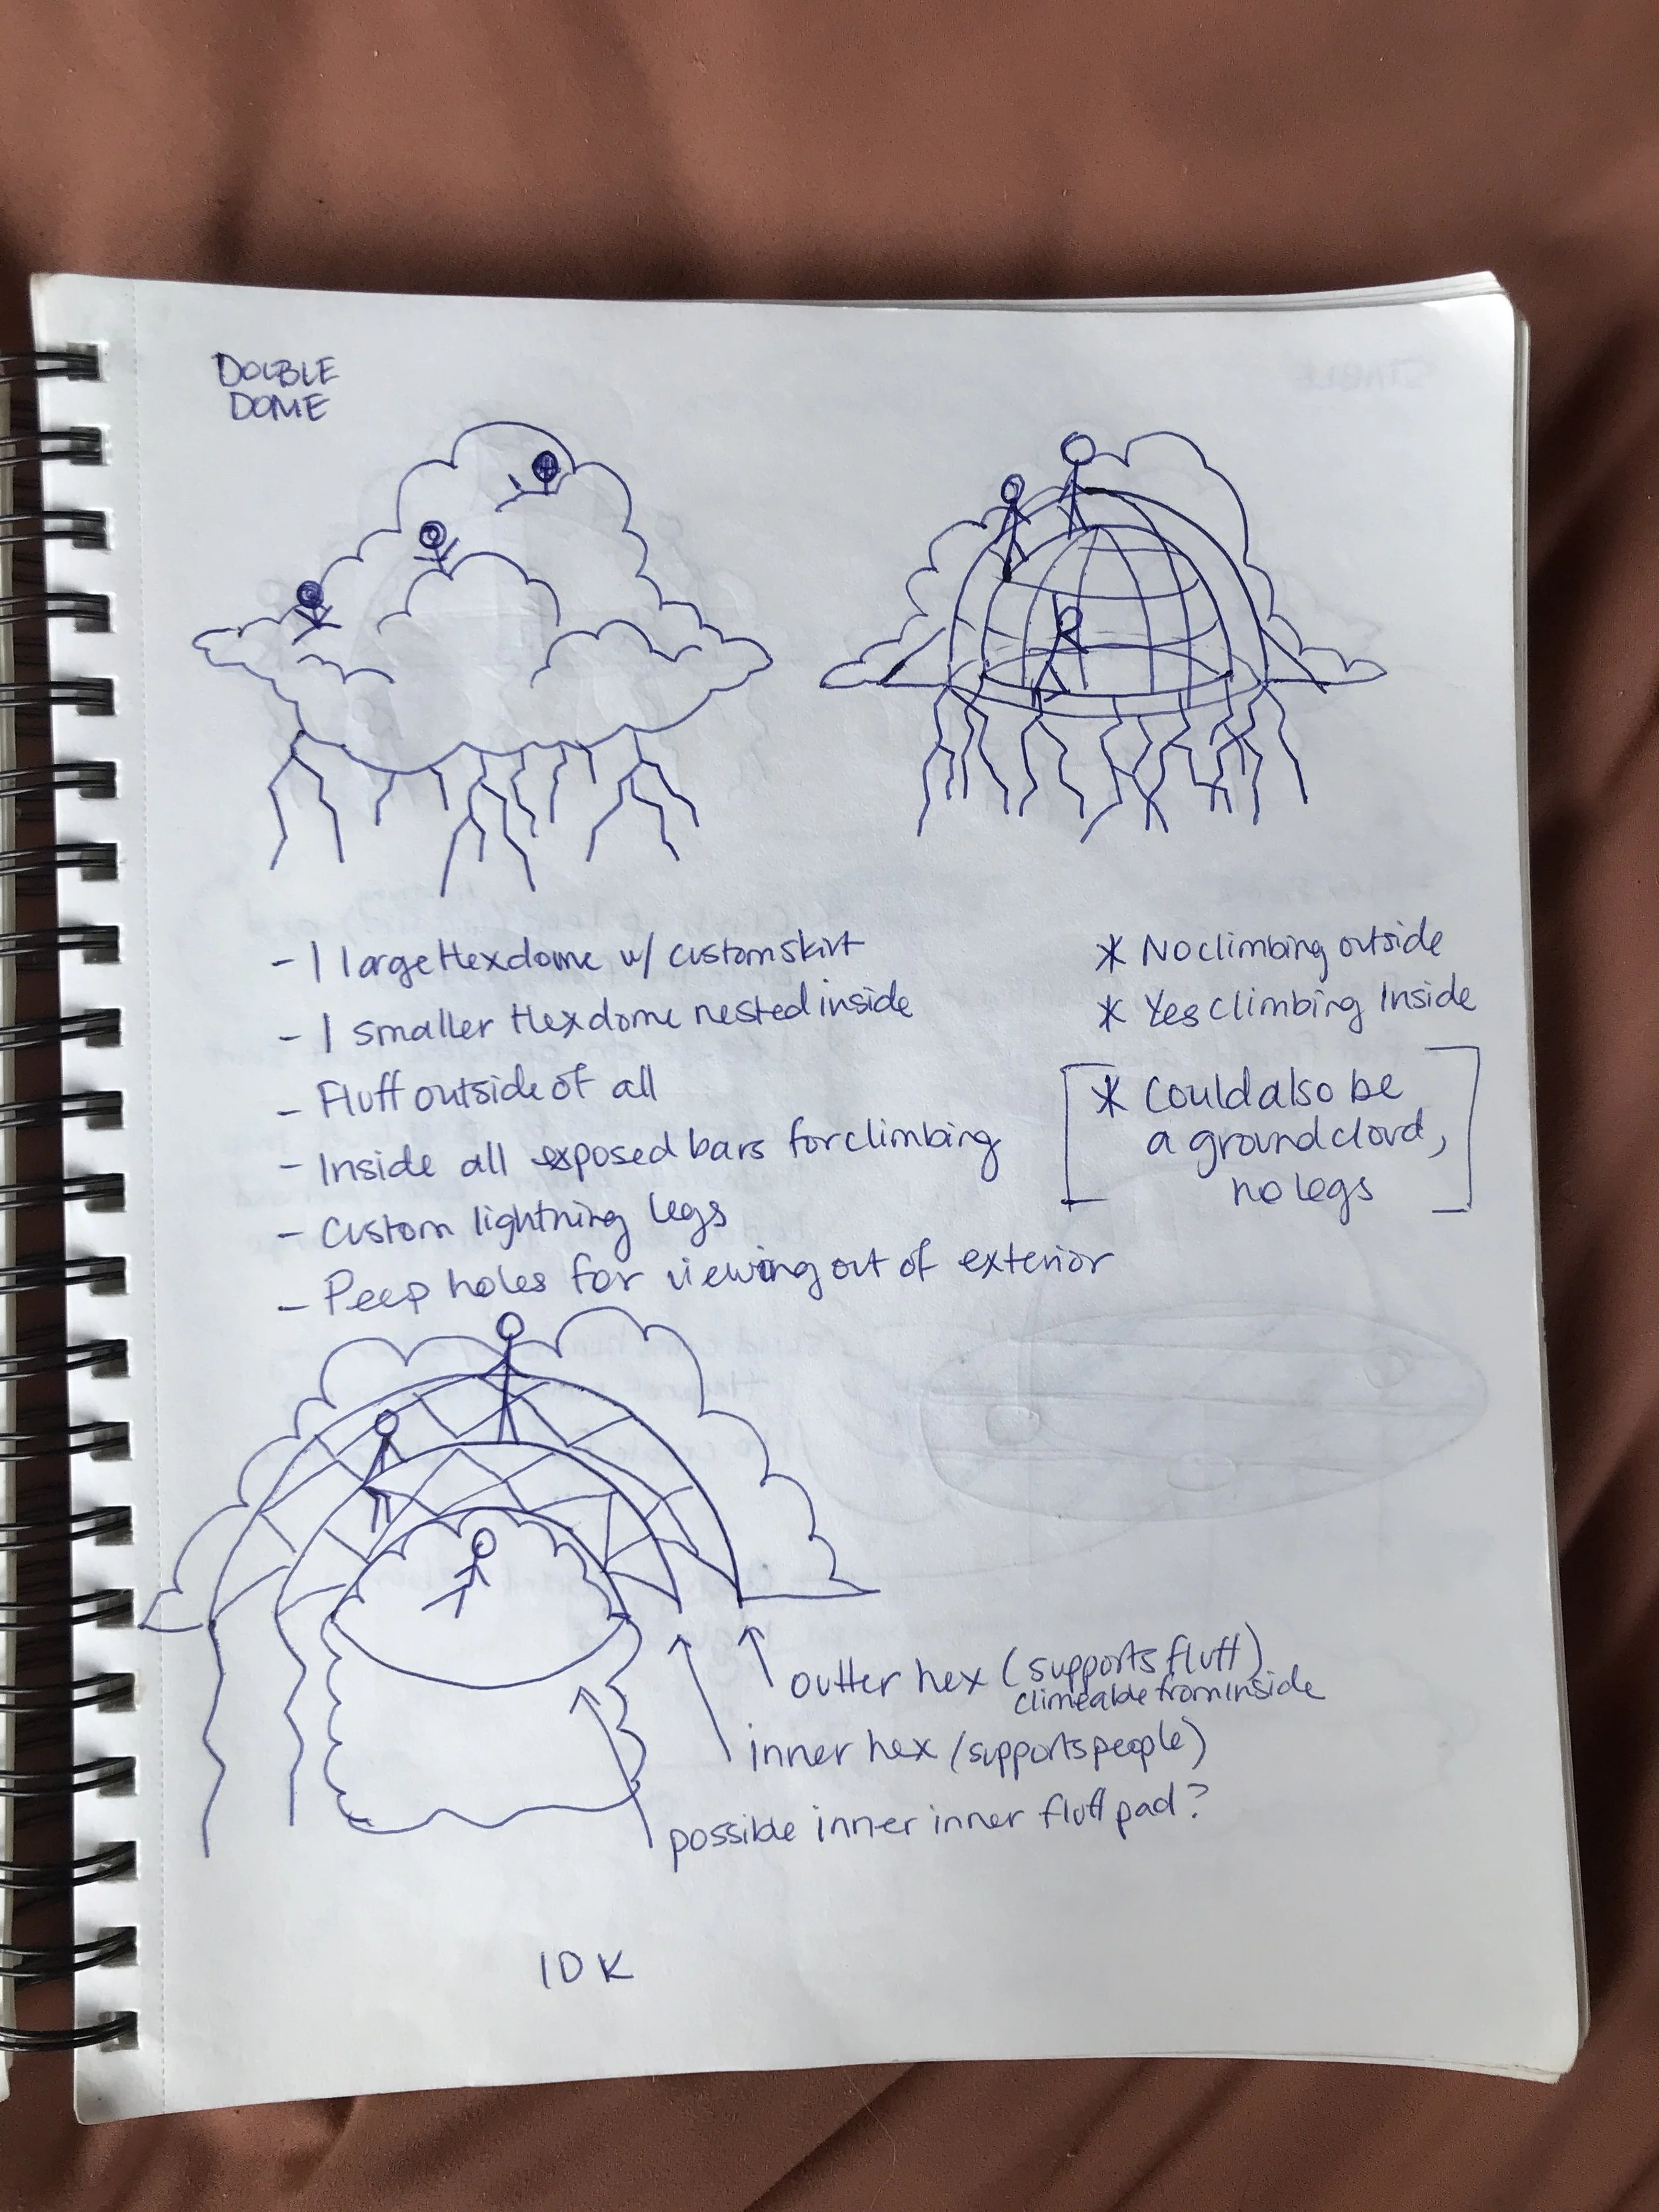 DOUBLE
DOME
- 1 large Hex dome w/ custom skirt
- 1 smaller Hex dome nested inside
- Fluff outside of all
- Inside all exposed bars for climbing
- Custom lightning legs
- Peep holes for viewing out of exterior
* No climbing outside
* Yes Climbing Inside
* Could also be
a ground cloud,
no legs
outter hex (supports fluff)
climeable from inside
inner hex (supports people)
possible inner inner fluff pad?
IDK